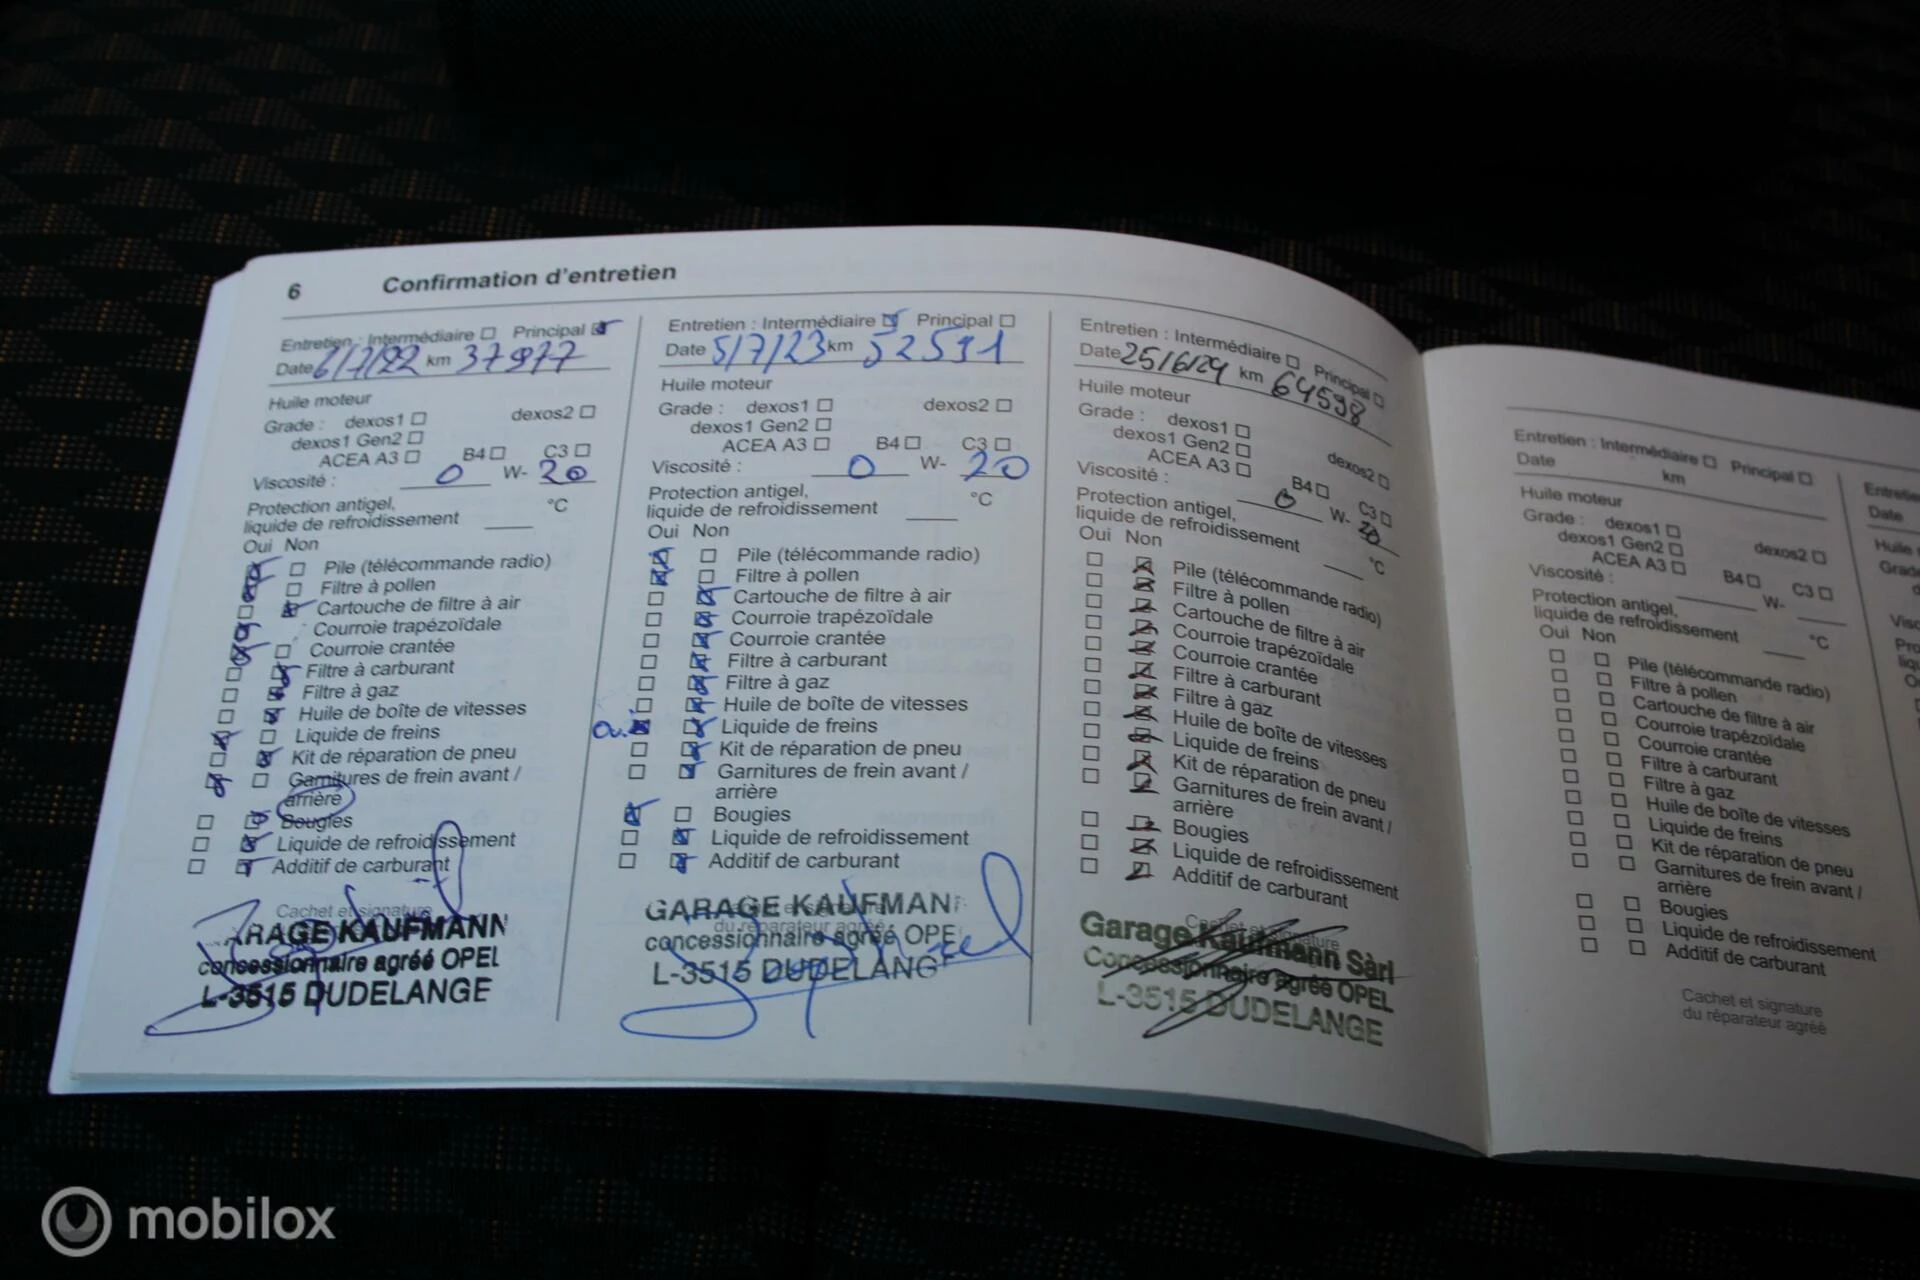 6 Confirmation d'entretien
Entretien : Intermédiaire Principal
Date 6/7/22 km 37977
Huile moteur
Grade : dexos1 dexos2
dexos1 Gen2
ACEA A3 B4 C3
Viscosité : 0 W- 20
Protection antigel,
liquide de refroidissement °C
Oui Non
Pile (télécommande radio)
Filtre à pollen
Cartouche de filtre à air
Courroie trapézoïdale
Courroie crantée
Filtre à carburant
Filtre à gaz
Huile de boîte de vitesses
Liquide de freins
Kit de réparation de pneu
Garnitures de frein avant /
arrière
Bougies
Liquide de refroidissement
Additif de carburant
Cachet et signature
ARAGE KAUFMANN
concessionnaire agréé OPEL
L-3515 DUDELANGE
Entretien : Intermédiaire Principal
Date 5/7/23 km 52591
Huile moteur
Grade : dexos1 dexos2
dexos1 Gen2
ACEA A3 B4 C3
Viscosité : 0 W- 20
Protection antigel,
liquide de refroidissement °C
Oui Non
Pile (télécommande radio)
Filtre à pollen
Cartouche de filtre à air
Courroie trapézoïdale
Courroie crantée
Filtre à carburant
Filtre à gaz
Huile de boîte de vitesses
Oui Liquide de freins
Kit de réparation de pneu
Garnitures de frein avant /
arrière
Bougies
Liquide de refroidissement
Additif de carburant
GARAGE KAUFMAN
du réparateur agréé
concessionnaire agréé OPE
L-3515 DUDELANG
Entretien : Intermédiaire Principal
Date 25/6/24 km 64598
Huile moteur
Grade : dexos1 dexos2
dexos1 Gen2
ACEA A3 B4 C3
Viscosité : 0 W-
Protection antigel,
liquide de refroidissement °C
Oui Non
Pile (télécommande radio)
Filtre à pollen
Cartouche de filtre à air
Courroie trapézoïdale
Courroie crantée
Filtre à carburant
Filtre à gaz
Huile de boîte de vitesses
Liquide de freins
Kit de réparation de pneu
Garnitures de frein avant /
arrière
Bougies
Liquide de refroidissement
Additif de carburant
Cachet et signature
Garage Kaufmann Sàrl
Concessionnaire agréé OPEL
L-3515 DUDELANGE
Entretien : Intermédiaire Principal
Date km
Huile moteur
Grade : dexos1 dexos2
dexos1 Gen2
ACEA A3 B4 C3
Viscosité : W-
Protection antigel,
liquide de refroidissement °C
Oui Non
Pile (télécommande radio)
Filtre à pollen
Cartouche de filtre à air
Courroie trapézoïdale
Courroie crantée
Filtre à carburant
Filtre à gaz
Huile de boîte de vitesses
Liquide de freins
Kit de réparation de pneu
Garnitures de frein avant /
arrière
Bougies
Liquide de refroidissement
Additif de carburant
Cachet et signature
du réparateur agréé
Date
mobilox